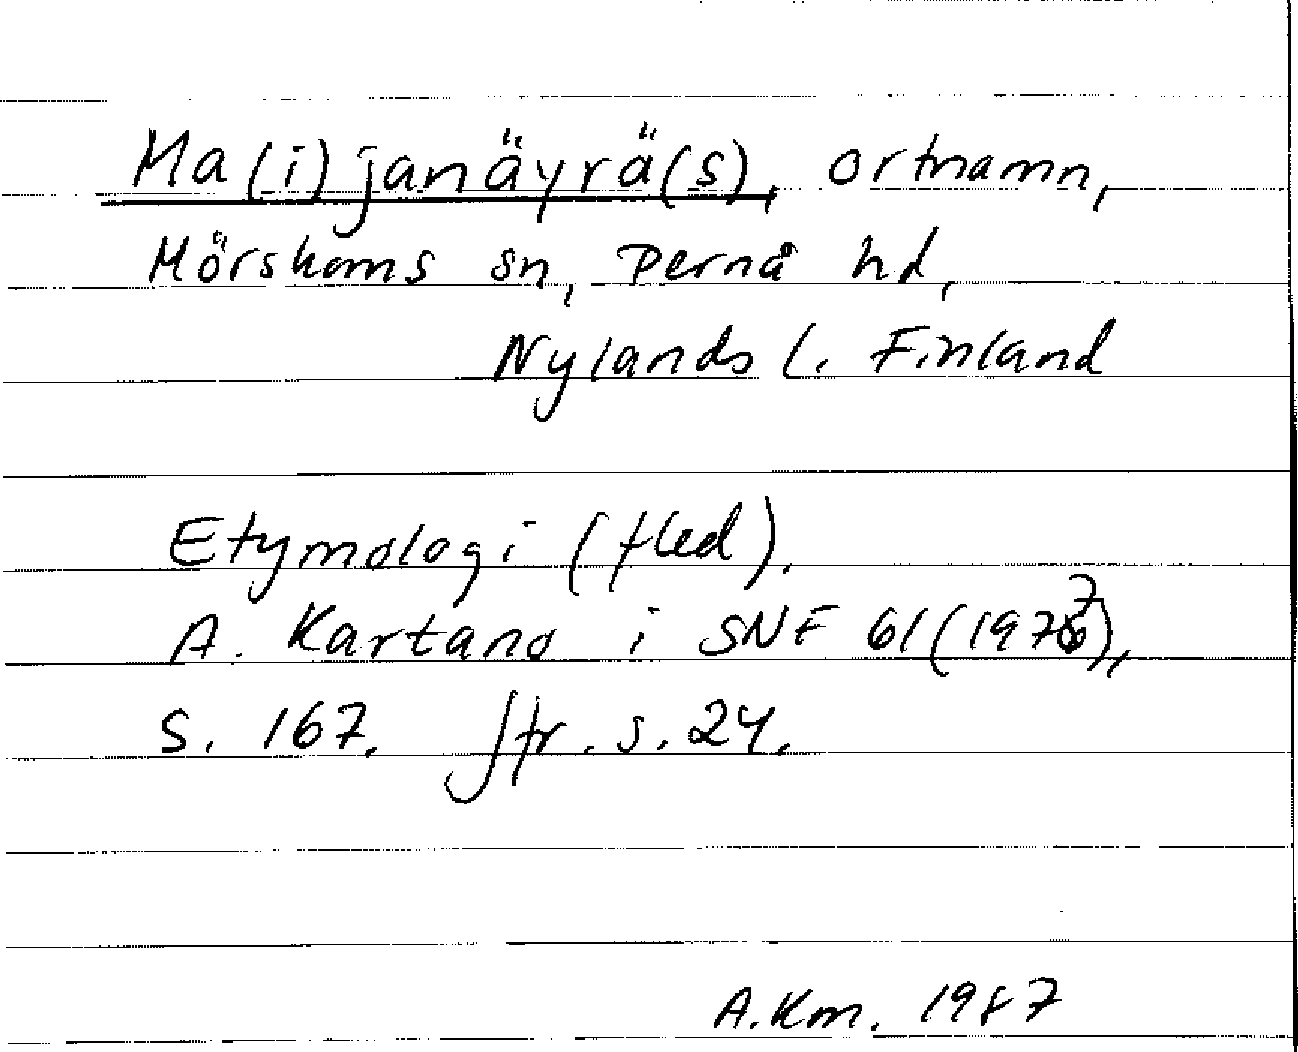 Ma(i)janäyrä(s), ortnamn,
Mörskoms sn, Pernå hd,
Nylands l. Finland
Etymologi (fled).
A. Kartano i SNF 61 (1977),
s. 167. Jfr. s. 24.
A.Km. 1987